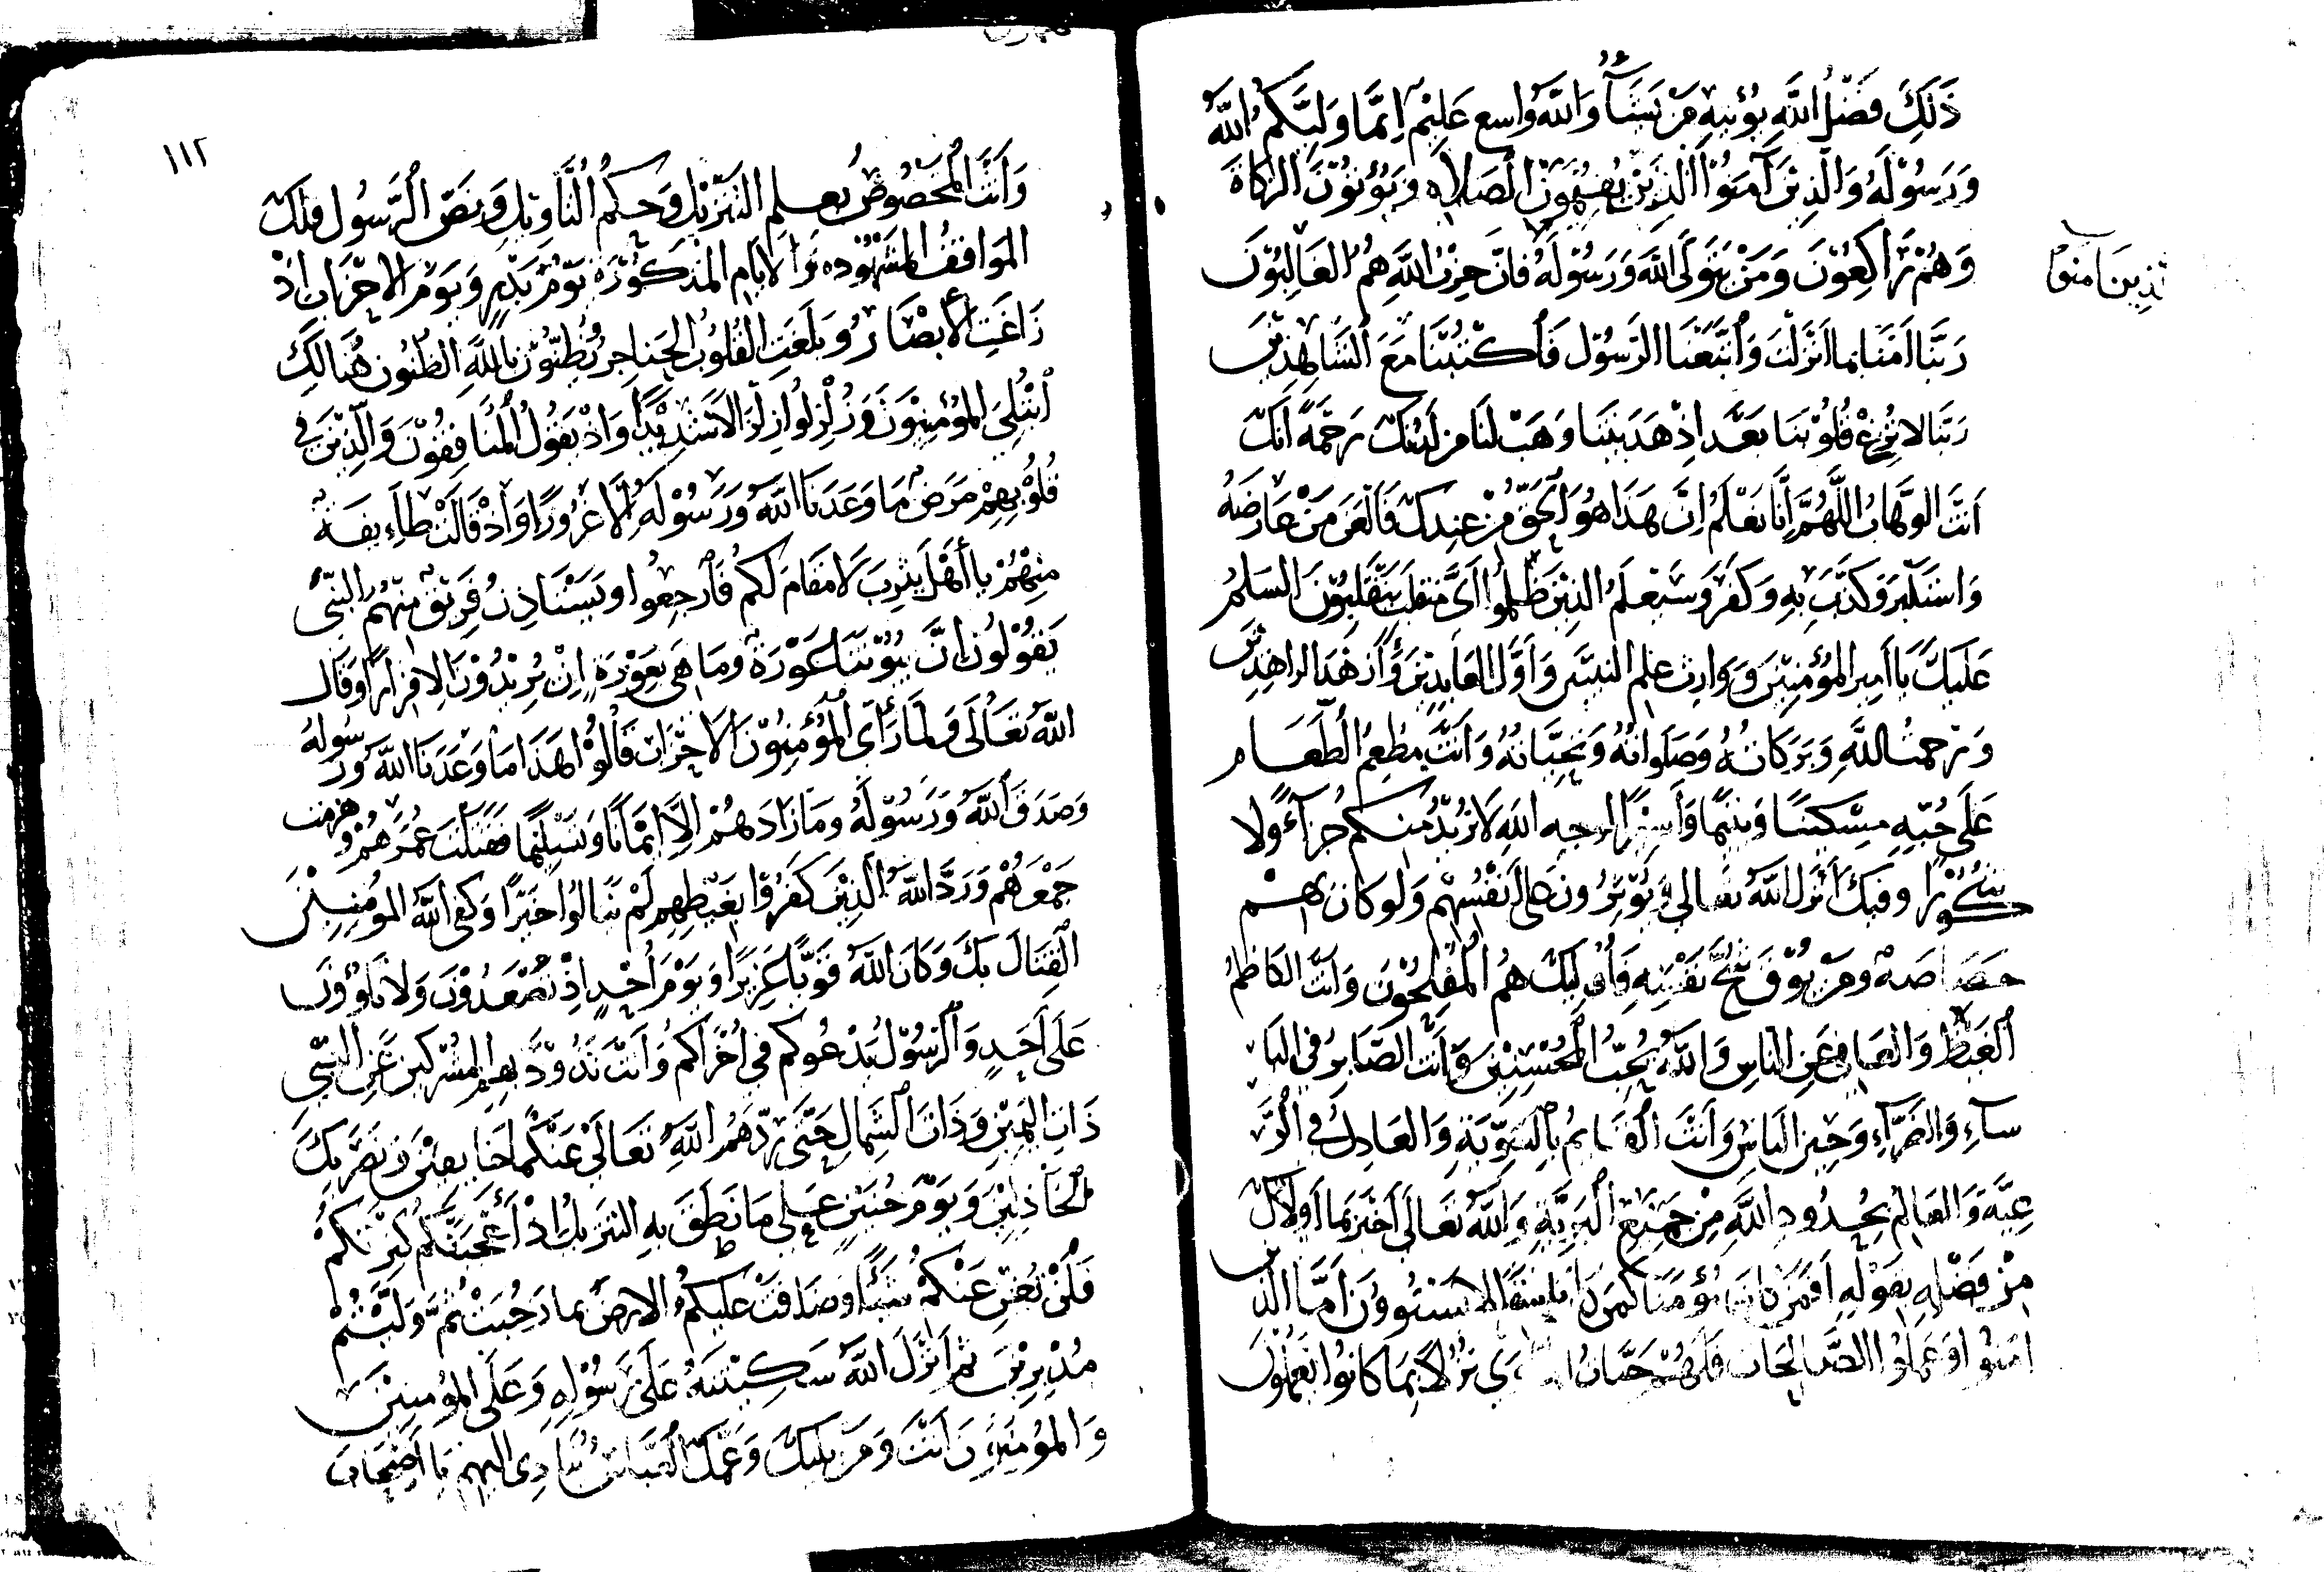 ذَلِكَ فَضْلُ اللَّهِ يُؤْتِيهِ مَنْ يَشَاءُ وَاللَّهُ وَاسِعٌ عَلِيمٌ اِنَّمَا وَلِيُّكُمُ اللَّهُ
وَرَسُوْلُهُ وَالَّذِيْنَ آمَنُوْا الَّذِيْنَ يُقِيْمُوْنَ الصَّلاةَ وَيُؤْتُوْنَ الزَّكَاةَ
وَهُمْ رَاكِعُوْنَ وَمَنْ يَتَوَلَّى اللَّهَ وَرَسُوْلَهُ فَاِنَّ حِزْبَ اللَّهِ هُمُ الغَالِبُوْنَ
لَّذِينَ امَنُوْا
رَبَّنَا امَنَّا بِمَا اَنْزَلْتَ وَاتَّبَعْنَا الرَّسُوْلَ فَاكْتُبْنَا مَعَ الشَّاهِدِيْنَ
رَبَّنَا لا تُزِغْ قُلُوْبَنَا بَعْدَ اِذْ هَدَيْتَنَا وَهَبْ لَنَا مِنْ لَدُنْكَ رَحْمَةً اِنَّكَ
اَنْتَ الوَهَّابُ اللَّهُمَّ اِنَّا نَعْلَمُ اِنَّ هَذَا هُوَ الحَقُّ مِنْ عِنْدِكَ فَالْعَنْ مَنْ عَارَضَهُ
وَاسْتَكْبَرَ وَكَذَّبَ بِهِ وَكَفَرَ وَسَيَعْلَمُ الَّذِيْنَ ظَلَمُوا اَيَّ مُنْقَلَبٍ يَنْقَلِبُوْنَ السَّلامُ
عَلَيْكَ يَا اَمِيرَ المُؤْمِنِيْنَ وَوَارِثَ عِلْمِ النَّبِيِّيْنَ وَاَوَّلَ العَابِدِيْنَ وَاَزْهَدَ الزَّاهِدِيْنَ
وَرَحْمَتُ اللَّهِ وَبَرَكَاتُهُ وَصَلَوَاتُهُ وَتَحِيَّاتُهُ وَاَنْتَ مُطْعِمُ الطَّعَامِ
عَلَى حُبِّهِ مِسْكِيْنًا وَيَتِيْمًا وَاَسِيْرًا لِوَجْهِ اللَّهِ لَا تُرِيْدُ مِنْكُمْ جَزَاءً وَلا
شُكُوْرًا وَفِيْكَ اَنْزَلَ اللَّهُ تَعَالَى وَيُؤْثِرُونَ عَلَى اَنْفُسِهِمْ وَلَوْ كَانَ بِهِمْ
خَصَاصَةٌ وَمَنْ يُوْقَ شُحَّ نَفْسِهِ فَاُولَئِكَ هُمُ المُفْلِحُوْنَ وَاَنْتَ الكَاظِمُ
الغَيْظَ وَالعَافِيْ عَنِ النَّاسِ وَاللَّهُ يُحِبُّ المُحْسِنِيْنَ وَاَنْتَ الصَّابِرُ فِي البَا
سَآءِ وَالضَّرَّآءِ وَحِيْنَ البَاسِ وَاَنْتَ القَاسِمُ بِالسَّوِيَّةِ وَالعَادِلُ فِي الرَّ
عِيَّةِ وَالعَالِمُ بِحُدُودِ اللَّهِ مِنْ جَمِيْعِ البَرِيَّةِ وَاللَّهُ تَعَالَى اَخْبَرَ بِمَا اَولاكَ
مِنْ فَضْلِهِ بِقَوْلِهِ اَفَمَنْ كَانَ مُؤْمِنًا كَمَنْ كَانَ فَاسِقًا لا يَسْتَوُوْنَ اَمَّا الَّذِيْنَ
امَنُوْا وَعَمِلُوْا الصَّالِحَاتِ فَلَهُمْ جَنَّاتُ المَاوَى نُزُلًا بِمَا كَانُوا يَعْمَلُوْنَ
١١٢
وَاَنْتَ المَخْصُوْصُ بِعِلْمِ التَّنْزِيْلِ وَحُكْمِ التَّاوِيْلِ وَنَصِّ الرَّسُولِ وَلَكَ
المَوَاقِفُ المَشْهُوْدَه وَالاَيَّامُ المَذْكُوْرَةُ يَوْمُ بَدْرٍ وَيَوْمُ الاَحْزَابِ اِذْ
زَاغَتِ الأَبْصَارُ وَبَلَغَتِ القُلُوْبُ الحَنَاجِرَ وَتَظُنُّوْنَ بِاللَّهِ الظُّنُونَ هُنَالِكَ
ابْتُلِيَ المُؤْمِنُوْنَ وَزُلْزِلُوا زِلْزَالا شَدِيْدًا وَاِذْ يَقُوْلُ المُنَافِقُوْنَ وَالَّذِيْنَ فِي
قُلُوْبِهِمْ مَرَضٌ مَا وَعَدَنَا اللَّهُ وَرَسُوْلُهُ اِلَّا غُرُورًا وَاِذْ قَالَتْ طَاءِيفَةٌ
مِنْهُمْ يَا أَهْلَ يَثْرِبَ لَا مَقَامَ لَكُمْ فَارْجِعُوا وَيَسْتَاذِنُ فَرِيْقٌ مِنْهُمُ النَّبِيَّ
يَقُوْلُوْنَ اِنَّ بُيُوْتَنَا عَوْرَةٌ وَمَا هِيَ بِعَوْرَةٍ اِنْ يُرِيْدُوْنَ اِلا فِرَارًا وَقَالَ
اللَّهُ تَعَالَى وَلَمَّا رَأَى المُؤْمِنُوْنَ الاَحْزَابَ قَالُوْا هَذَا مَا وَعَدَنَا اللَّهُ وَرَسُولُهُ
وَصَدَقَ اللَّهُ وَرَسُوْلُهُ وَمَا زَادَهُمْ اِلَّا اِيْمَانًا وَتَسْلِيْمًا فَقَتَلْتَ عَمْرَهُمْ وَهَزَمْتَ
جَمْعَهُمْ وَرَدَّ اللَّهُ الَّذِيْنَ كَفَرُوْا بِغَيْظِهِمْ لَمْ يَنَالُوا خَيْرًا وَكَفَى اللَّهُ المُؤْمِنِيْنَ
القِتَالَ بِكَ وَكَانَ اللَّهُ قَوِيًّا عَزِيْزًا وَيَوْمَ اُحُدٍ اِذْ تُصْعِدُوْنَ وَلا تَلْوُوْنَ
عَلَى اَحَدٍ وَالرَّسُوْلُ يَدْعُوكُمْ فِي اُخْرَاكُمْ وَاَنْتَ تَذُوْدُ بِهِمُ المُشْرِكِيْنَ عَنِ النَّبِيِّ
ذَاتَ اليَمِيْنِ وَذَاتَ الشِّمَالِ حَتَّى رَدَّهُمُ اللَّهُ تَعَالَى عَنْكُمَا خَايِفِيْنَ وَنَصَرَ بِكَ
الخَاذِلِيْنَ وَيَوْمَ حُنَيْنٍ عَلَى مَا نَطَقَ بِهِ التَّنْزِيْلُ اِذْ أَعْجَبَتْكُمْ كَثْرَتُكُمْ
فَلَنْ تُغْنِ عَنْكُمْ شَيْئًا وَضَاقَتْ عَلَيْكُمُ الاَرْضُ بِمَا رَحُبَتْ ثُمَّ وَلَّيْتُمْ
مُدْبِرِيْنَ ثُمَّ اَنْزَلَ اللَّهُ سَكِيْنَتَهُ عَلَى رَسُوْلِهِ وَعَلَى المُؤْمِنِيْنَ
وَالمُؤْمِنُوْنَ اَنْتَ وَمَنْ يَلِيْكَ وَعَمُّكَ العَبَّاسُ يُنَادِي المنهزمين يَا اَصْحَابَ